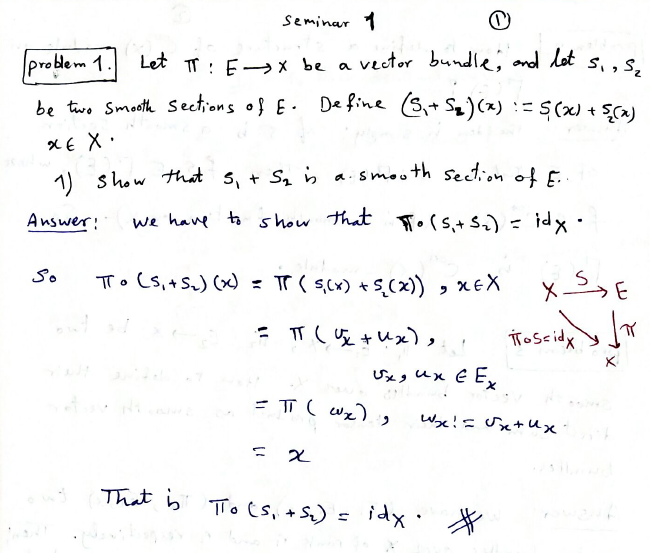 seminar 1 ①
problem 1. Let π : E → X be a vector bundle, and let s₁, s₂
be two smooth sections of E. Define (s₁ + s₂)(x) := s₁(x) + s₂(x)
x ∈ X.
1) show that s₁ + s₂ is a smooth section of E.
Answer: we have to show that π∘(s₁+s₂) = id_X.
So π∘(s₁+s₂)(x) = π(s₁(x) + s₂(x)), x∈X
X →S E
= π(v_x + u_x),
π∘S=id_X ↓π
X
v_x, u_x ∈ E_x
= π(w_x), w_x := v_x + u_x
= x
That is π∘(s₁+s₂) = id_X. #